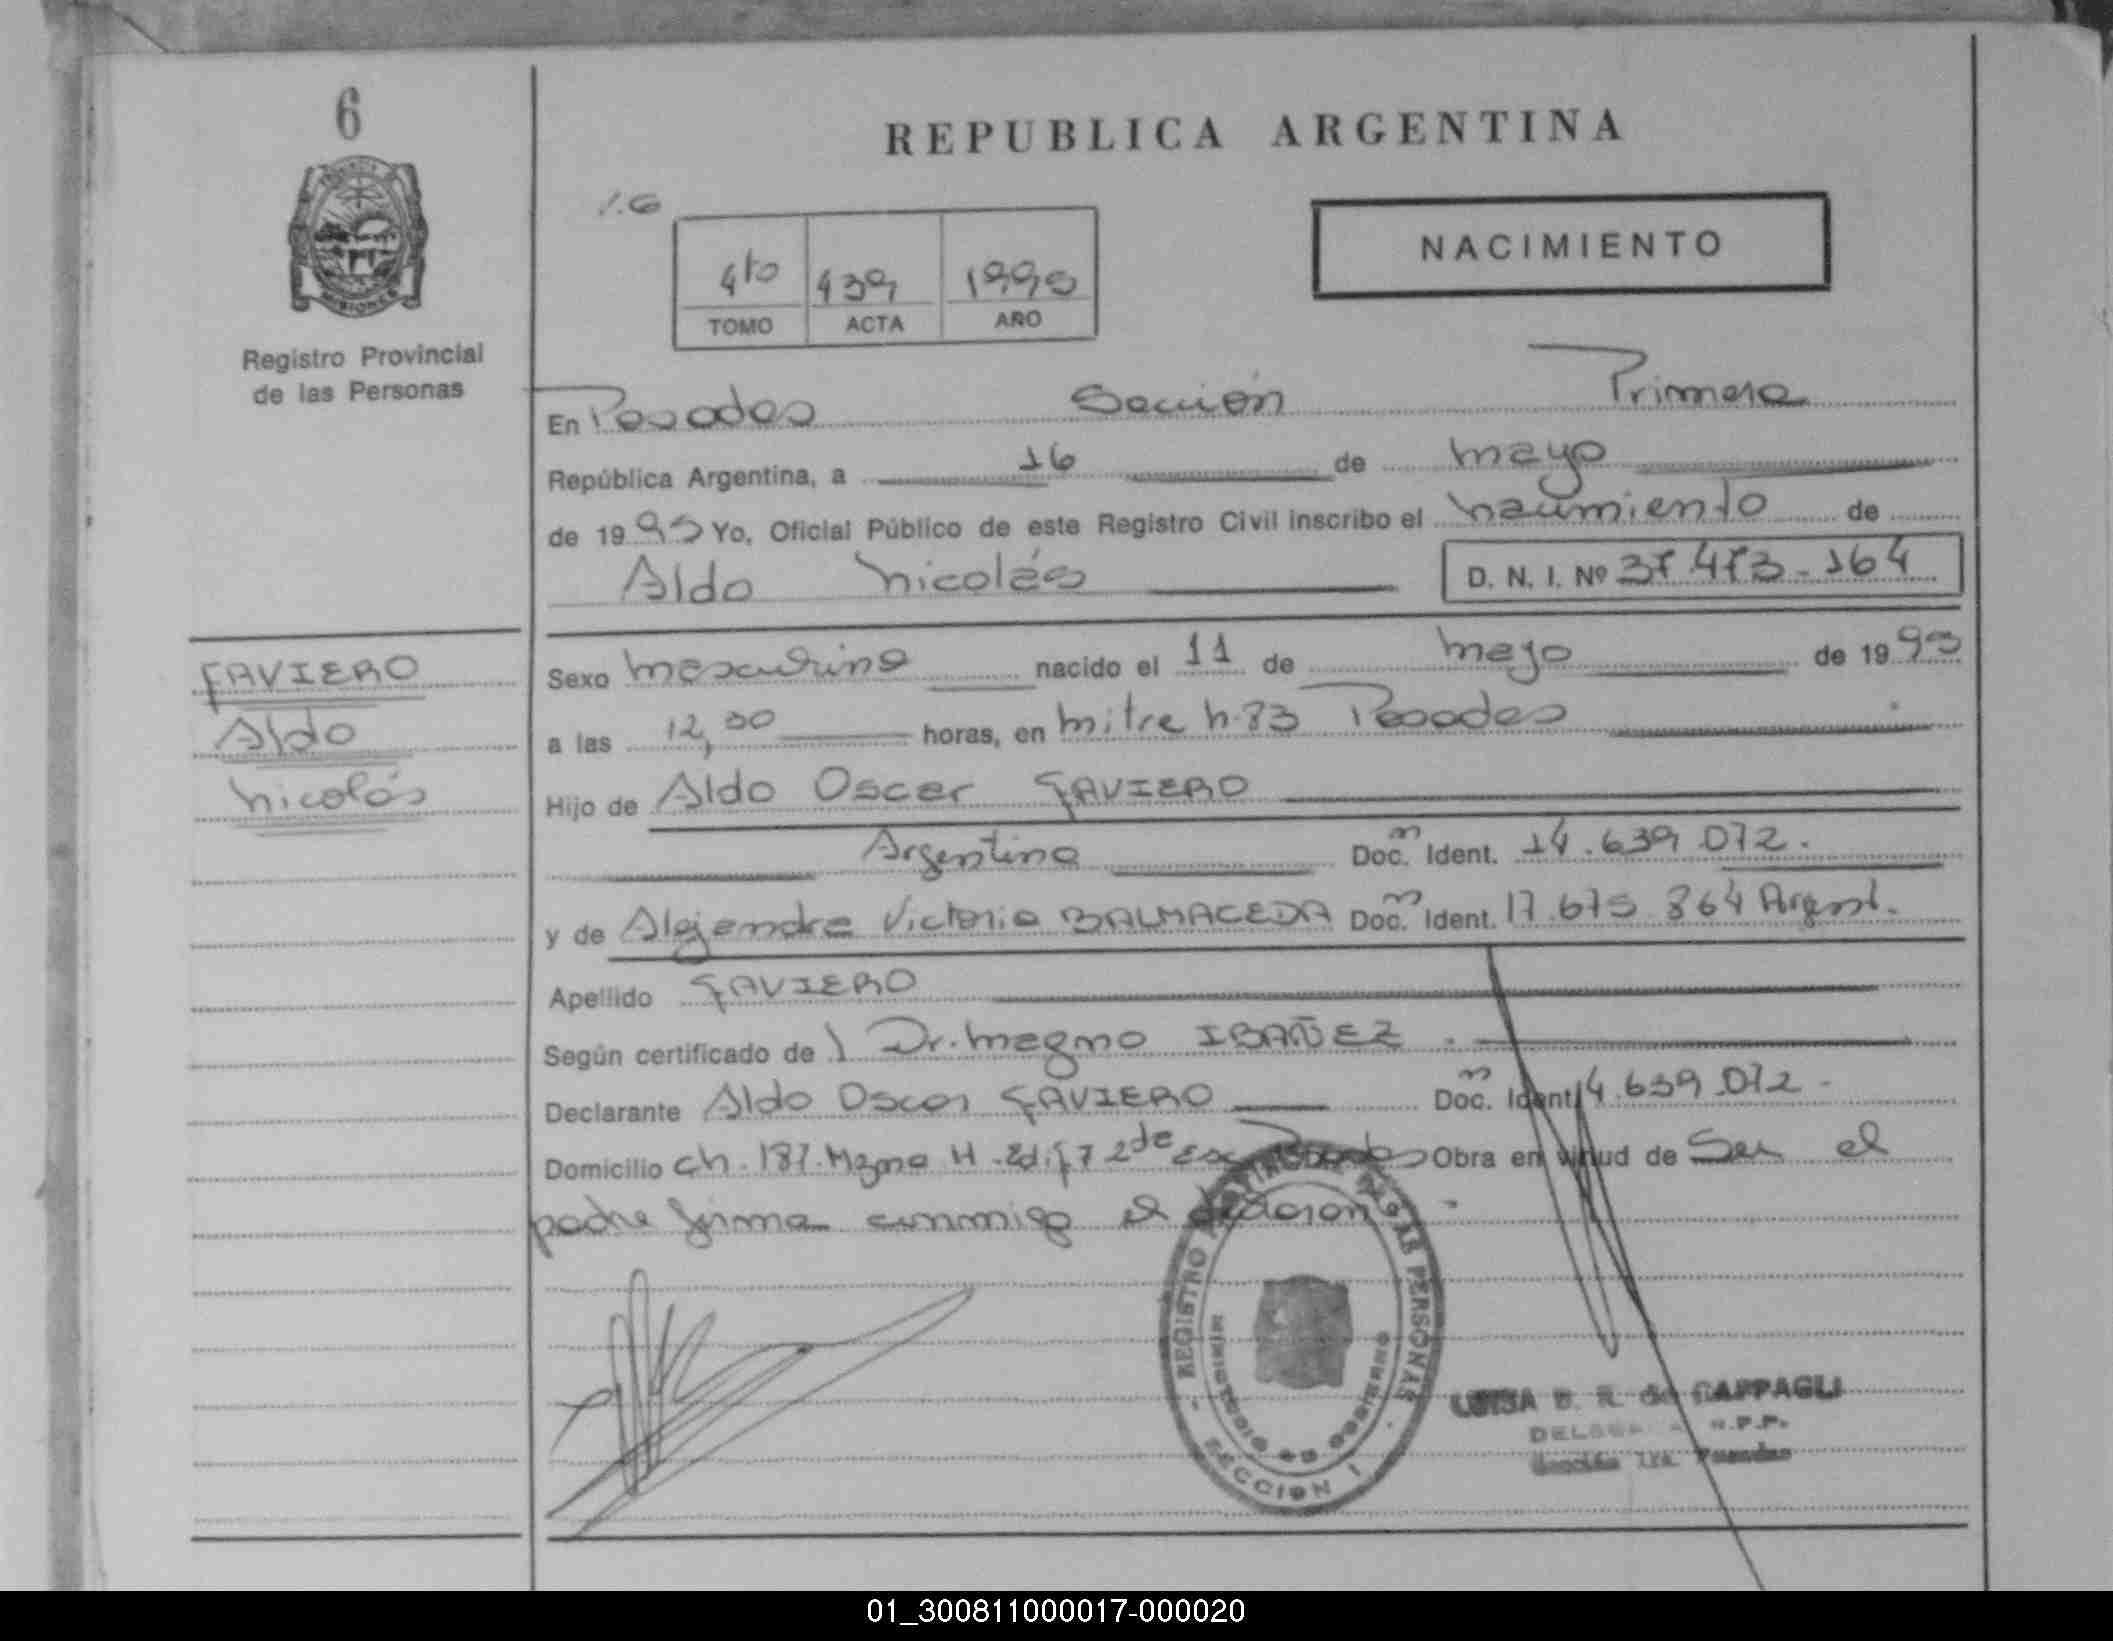 6
REPUBLICA ARGENTINA
4to 439 1995
TOMO ACTA AÑO
NACIMIENTO
Registro Provincial
de las Personas
MISIONES
En Posadas Sección Primera
República Argentina, a 16 de mayo
de 19 95 Yo, Oficial Público de este Registro Civil inscribo el nacimiento de
Aldo Nicolás D. N. I. Nº 37.473.164
FAVIERO
Aldo
Nicolás
Sexo masculino nacido el 11 de mayo de 19 93
a las 12,30 horas, en Mitre N. 73 Posadas
Hijo de Aldo Oscar FAVIERO
Argentino Doc. Ident. 14.639.072.
y de Alejandra Victoria BALMACEDA Doc. Ident. 17.675 864 Argent.
Apellido FAVIERO
Según certificado de Dr. Magno IBAÑEZ
Declarante Aldo Oscar FAVIERO Doc. Ident. 14.639.072
Domicilio Ch. 187. Mzna H. Edif 7 2de Esc Posadas Obra en virtud de Ser el
padre firma conmigo el declarante
REGISTRO DE LAS PERSONAS
Ministerio de Gobierno
SECCION I
LUISA B. R. de CAPPAGLI
R.P.P.
Sección 1ra. Posadas
01_300811000017-000020